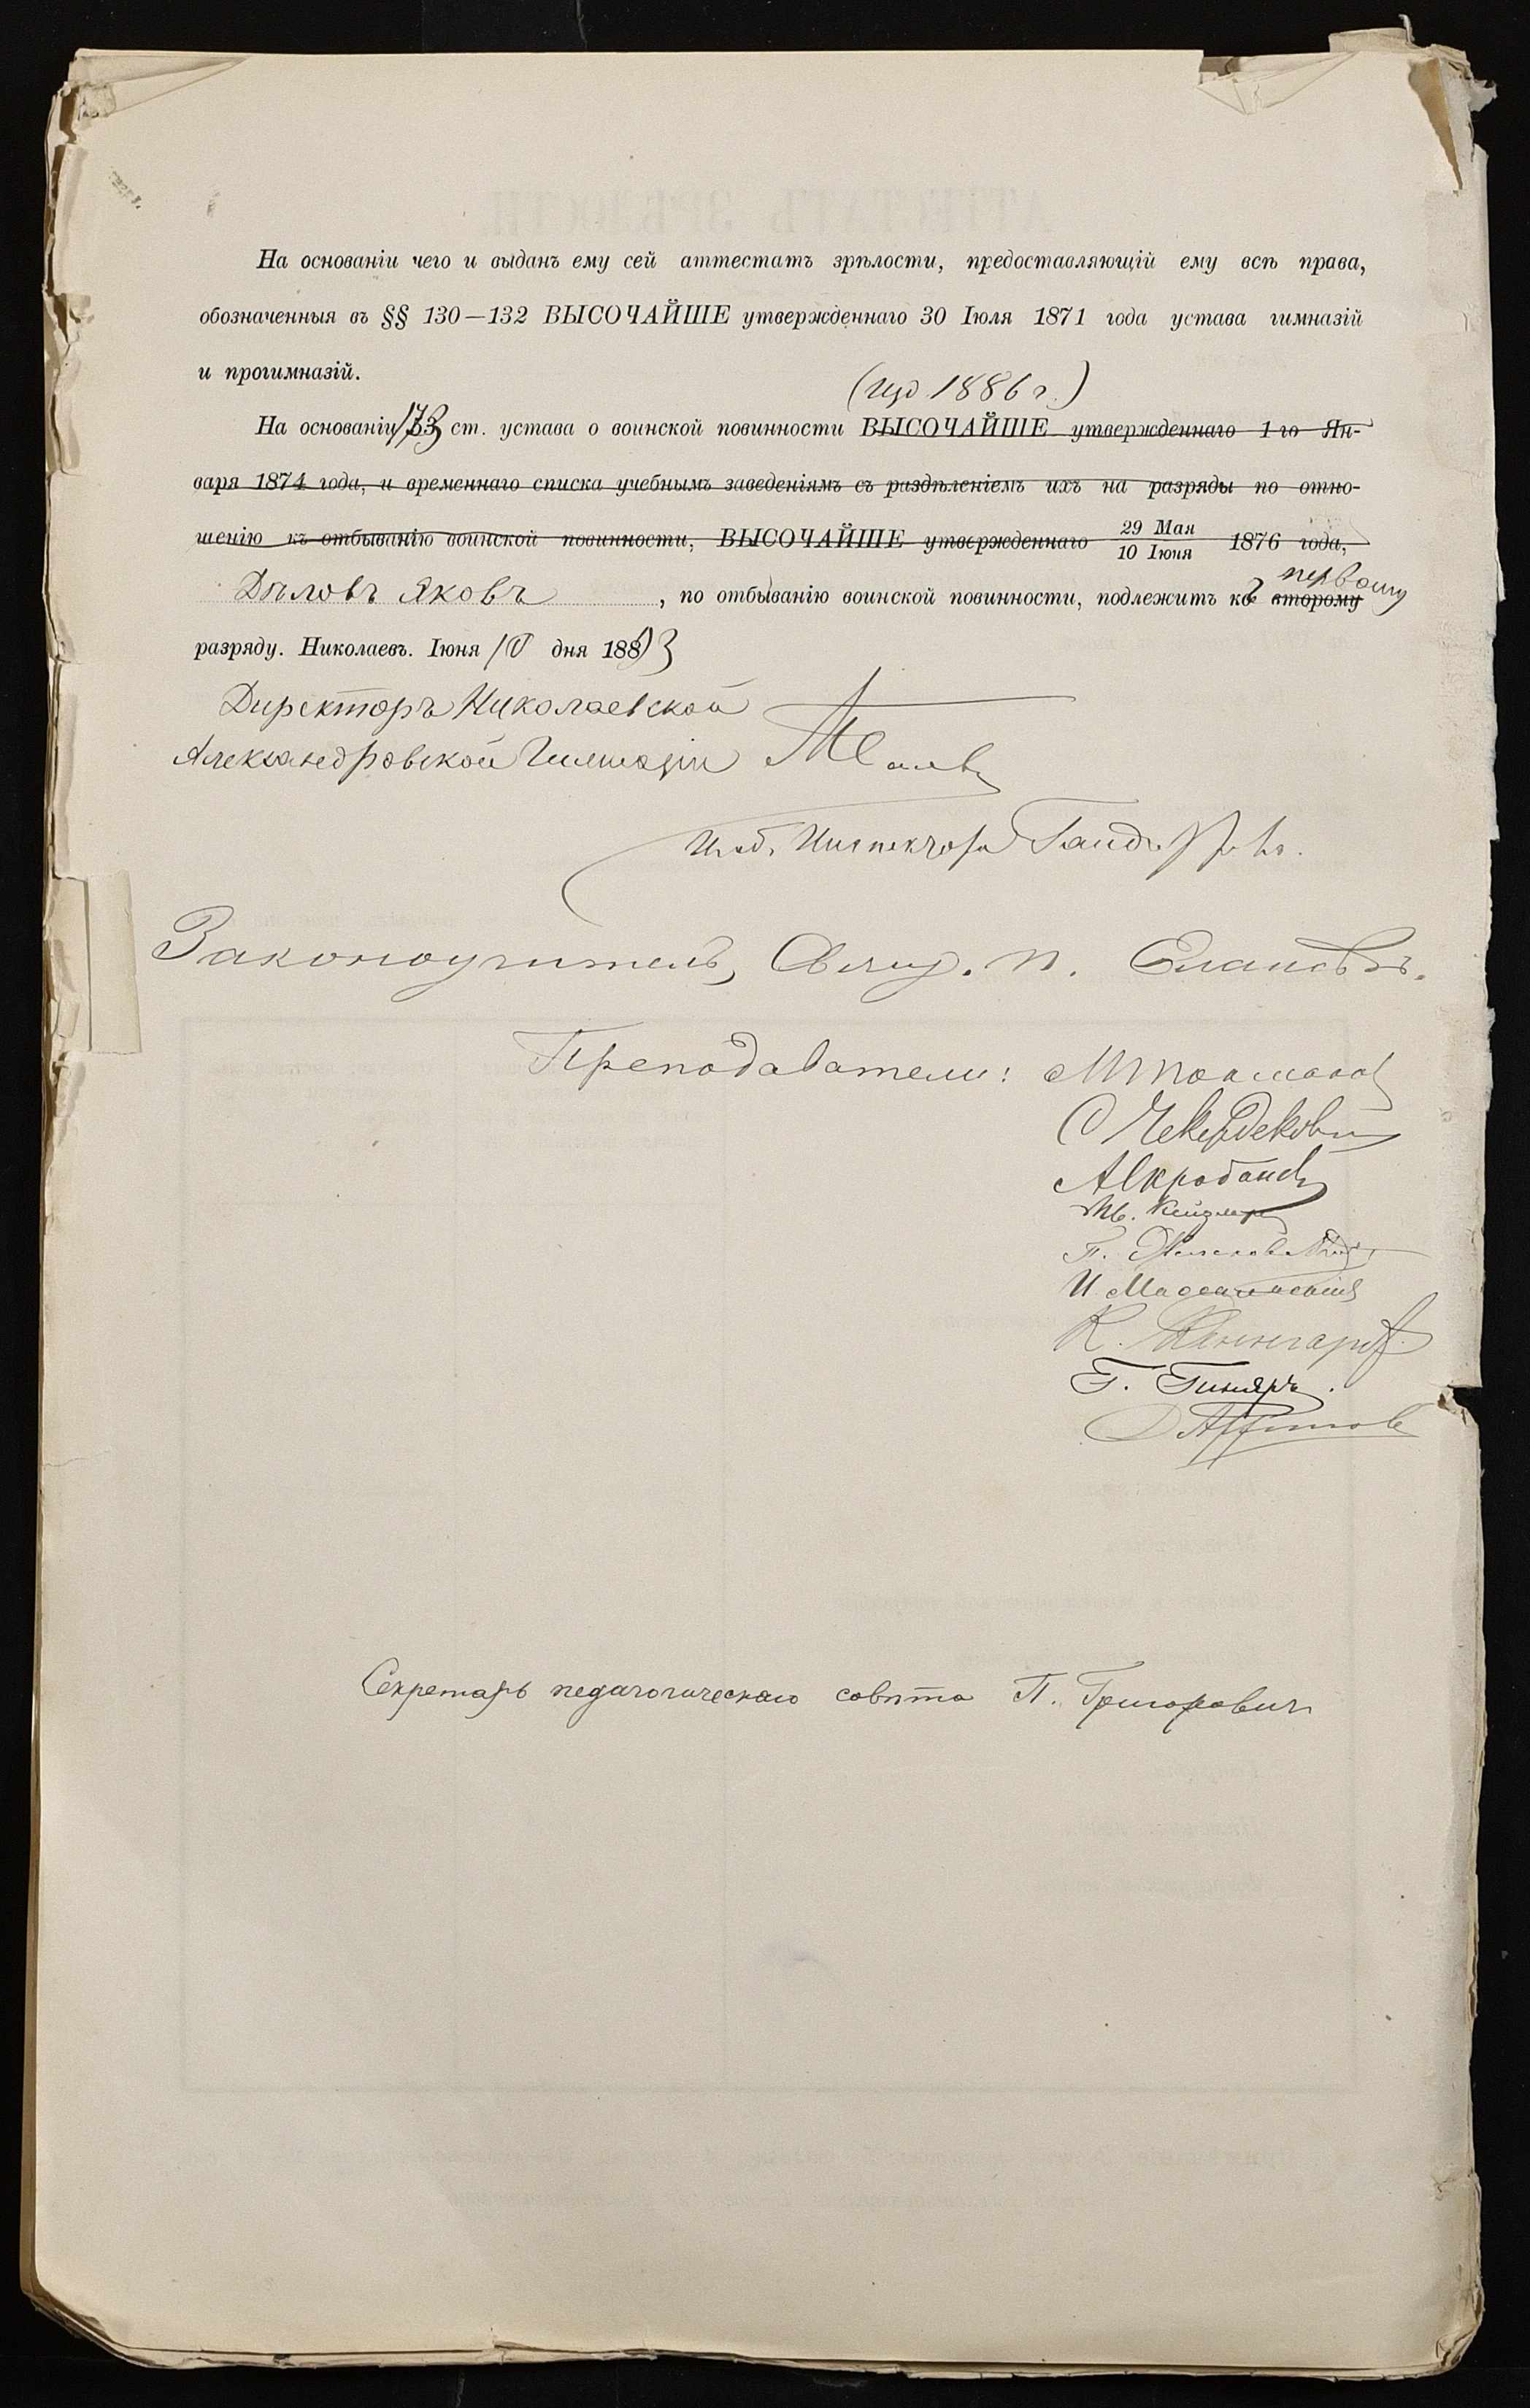 На основаніи чего и выданъ ему сей аттестатъ зрѣлости, предоставляющій ему всѣ права,
обозначенныя въ §§ 130—132 ВЫСОЧАЙШЕ утвержденнаго 30 Іюля 1871 года устава гимназій
и прогимназій.
(изд 1886 г.)
На основаніи 173 ст. устава о воинской повинности ВЫСОЧАЙШЕ утвержденнаго 1-го Ян-
варя 1874 года, и временнаго списка учебнымъ заведеніямъ съ раздѣленіемъ ихъ на разряды по отно-
шенію къ отбыванію воинской повинности, ВЫСОЧАЙШЕ утвержденнаго 29 Мая / 10 Іюня 1876 года,
первому
Дѣловъ Яковъ, по отбыванію воинской повинности, подлежитъ ко второму
разряду. Николаевъ. Іюня 10 дня 1893
Директоръ Николаевской
Александровской Гимназіи
Инспектора
Законоучитель, Свящ. П. Еланскій.
Преподаватели:
П.
И.
К.
Г. Гиняръ.
Секретарь педагогическаго совѣта П. Григоровичъ